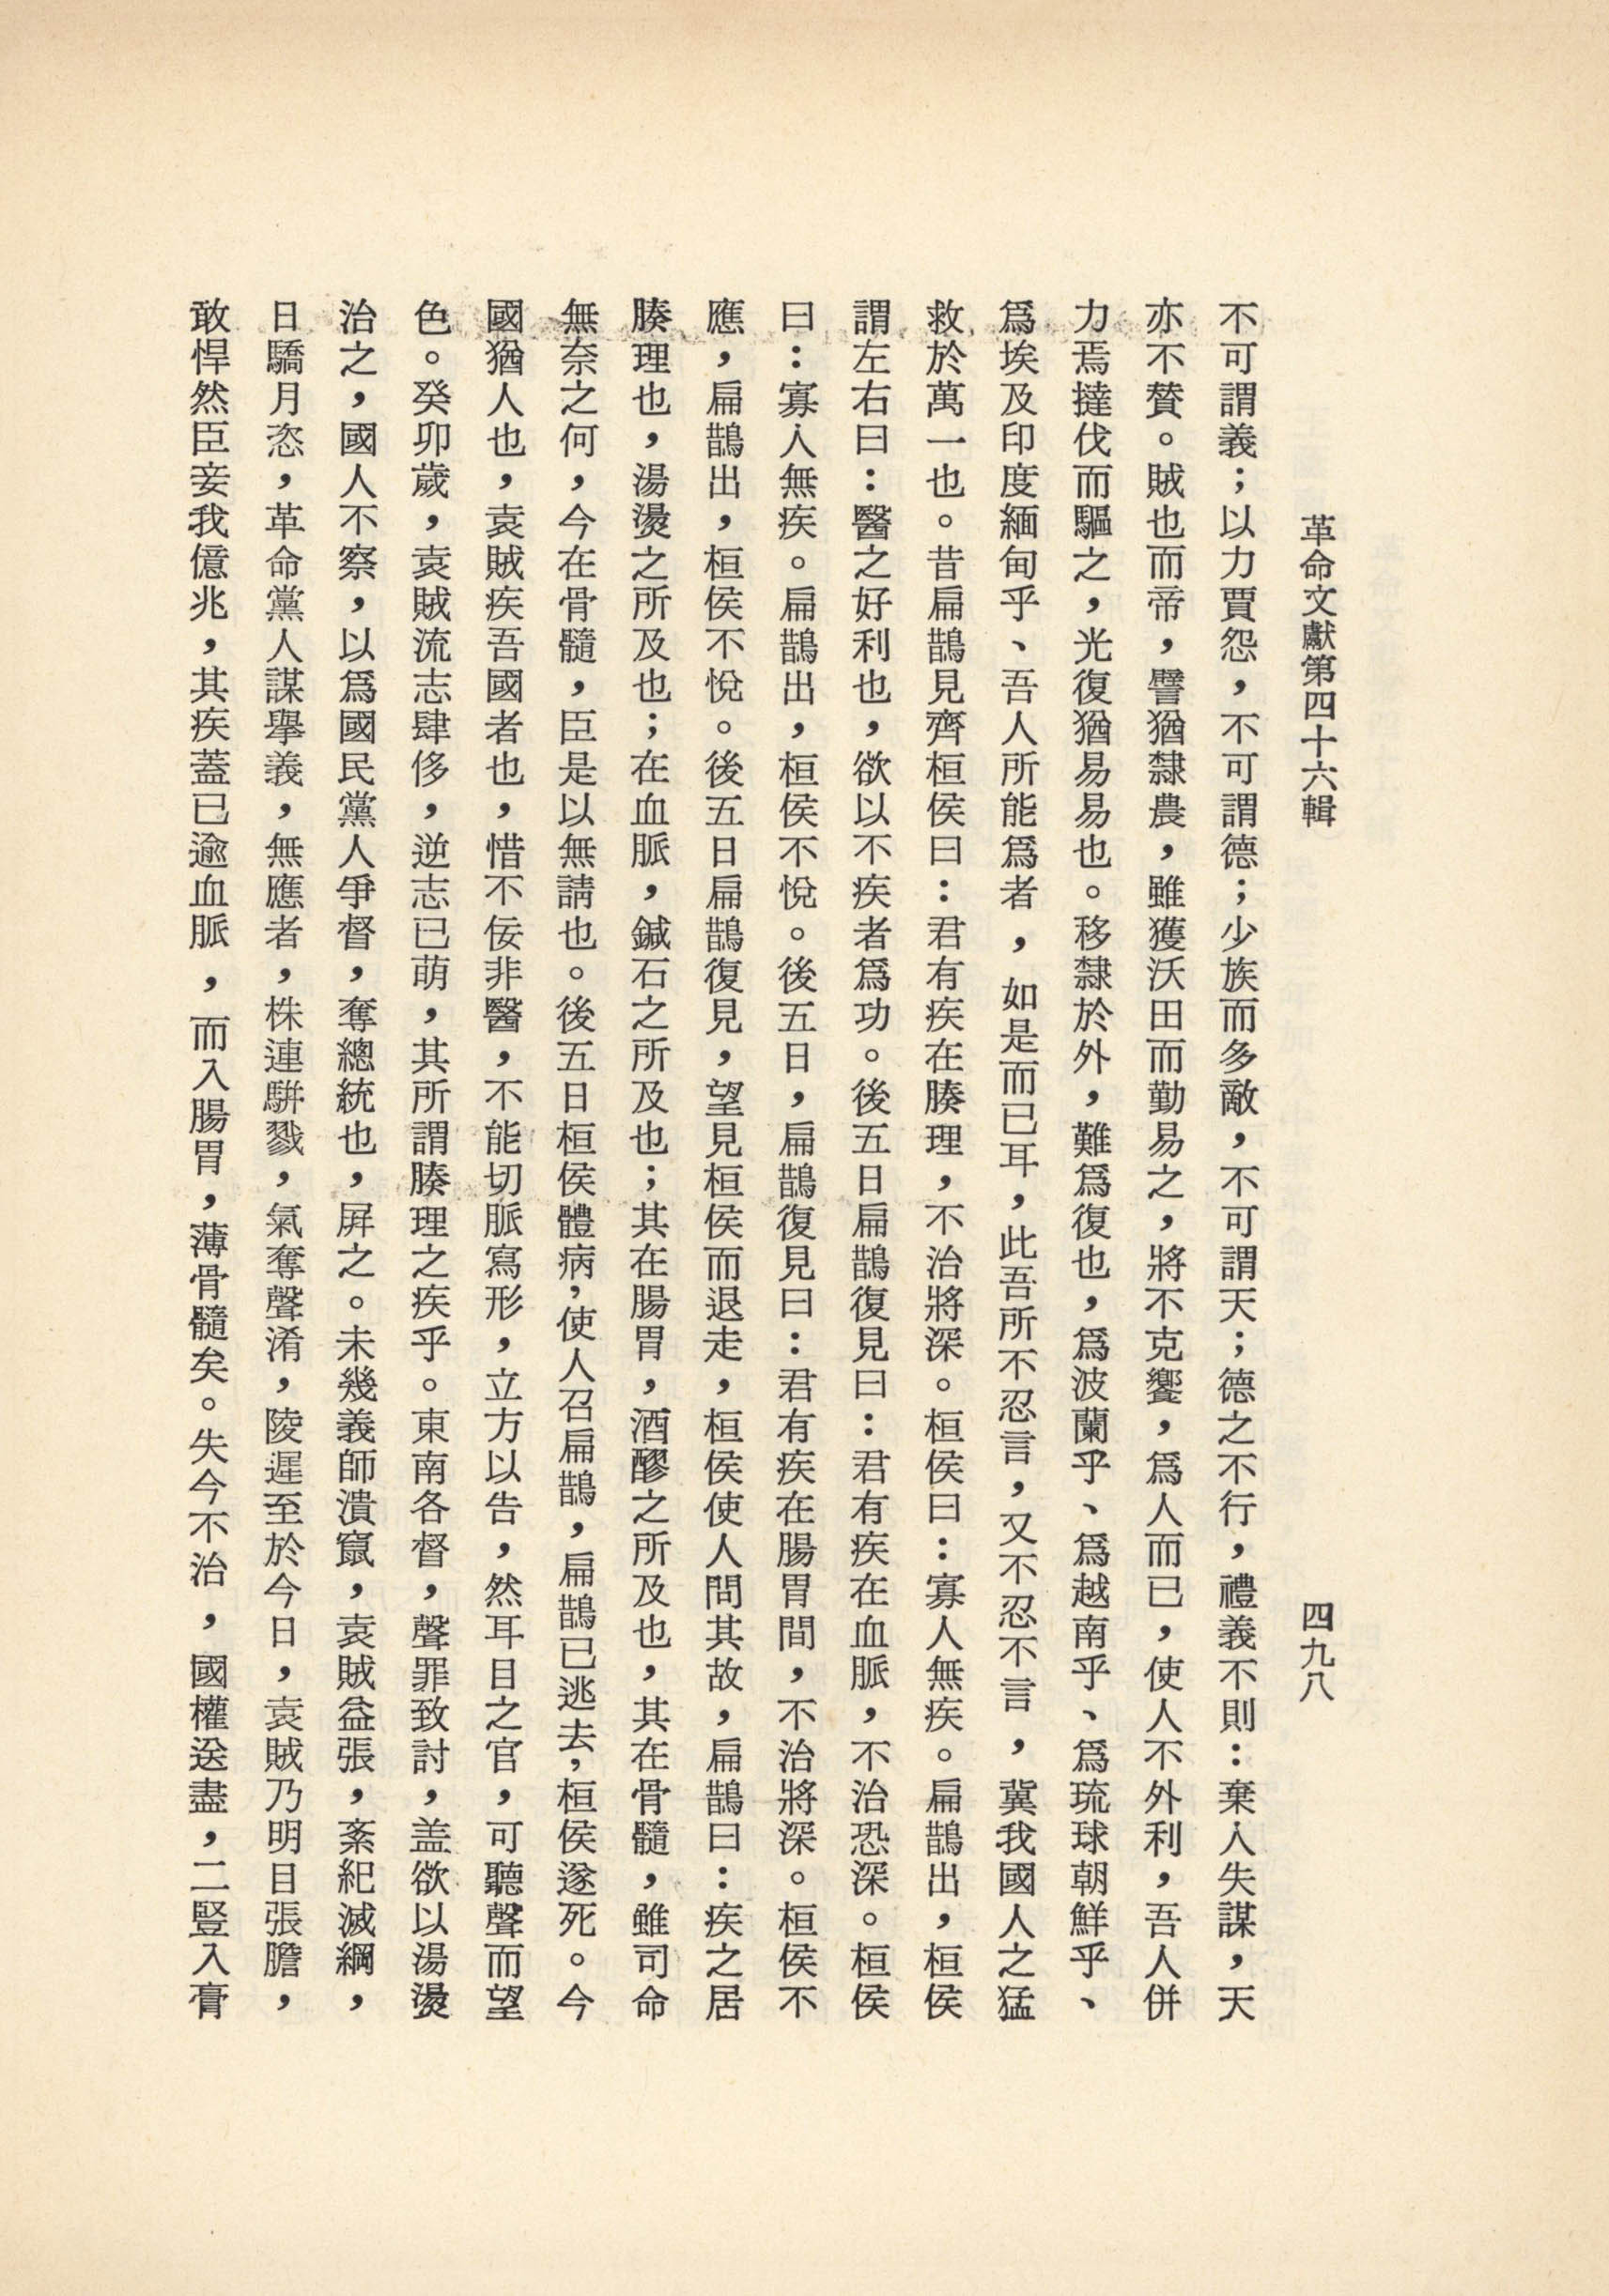 革命文獻第四十六輯
四九八
不可謂義；以力賈怨，不可謂德；少族而多敵，不可謂天；德之不行，禮義不則：棄人失謀，天
亦不贊。賊也而帝，譬猶隸農，雖獲沃田而勤易之，將不克饗，爲人而已，使人不外利，吾人併
力焉撻伐而驅之，光復猶易易也。移隸於外，難爲復也，爲波蘭乎、爲越南乎、爲琉球朝鮮乎、
爲埃及印度緬甸乎、吾人所能爲者，如是而已耳，此吾所不忍言，又不忍不言，冀我國人之猛
救於萬一也。昔扁鵲見齊桓侯曰：君有疾在腠理，不治將深。桓侯曰：寡人無疾。扁鵲出，桓侯
謂左右曰：醫之好利也，欲以不疾者爲功。後五日扁鵲復見曰：君有疾在血脈，不治恐深。桓侯
曰：寡人無疾。扁鵲出，桓侯不悅。後五日，扁鵲復見曰：君有疾在腸胃間，不治將深。桓侯不
應，扁鵲出，桓侯不悅。後五日扁鵲復見，望見桓侯而退走，桓侯使人問其故，扁鵲曰：疾之居
腠理也，湯燙之所及也；在血脈，鍼石之所及也；其在腸胃，酒醪之所及也，其在骨髓，雖司命
無奈之何，今在骨髓，臣是以無請也。後五日桓侯體病，使人召扁鵲，扁鵲已逃去，桓侯遂死。今
國猶人也，袁賊疾吾國者也，惜不佞非醫，不能切脈寫形，立方以告，然耳目之官，可聽聲而望
色。癸卯歲，袁賊流志肆侈，逆志已萌，其所謂腠理之疾乎。東南各督，聲罪致討，盖欲以湯燙
治之，國人不察，以爲國民黨人爭督，奪總統也，屏之。未幾義師潰竄，袁賊益張，紊紀滅綱，
日驕月恣，革命黨人謀舉義，無應者，株連駢戮，氣奪聲淆，陵遲至於今日，袁賊乃明目張膽，
敢悍然臣妾我億兆，其疾蓋已逾血脈，而入腸胃，薄骨髓矣。失今不治，國權送盡，二豎入膏